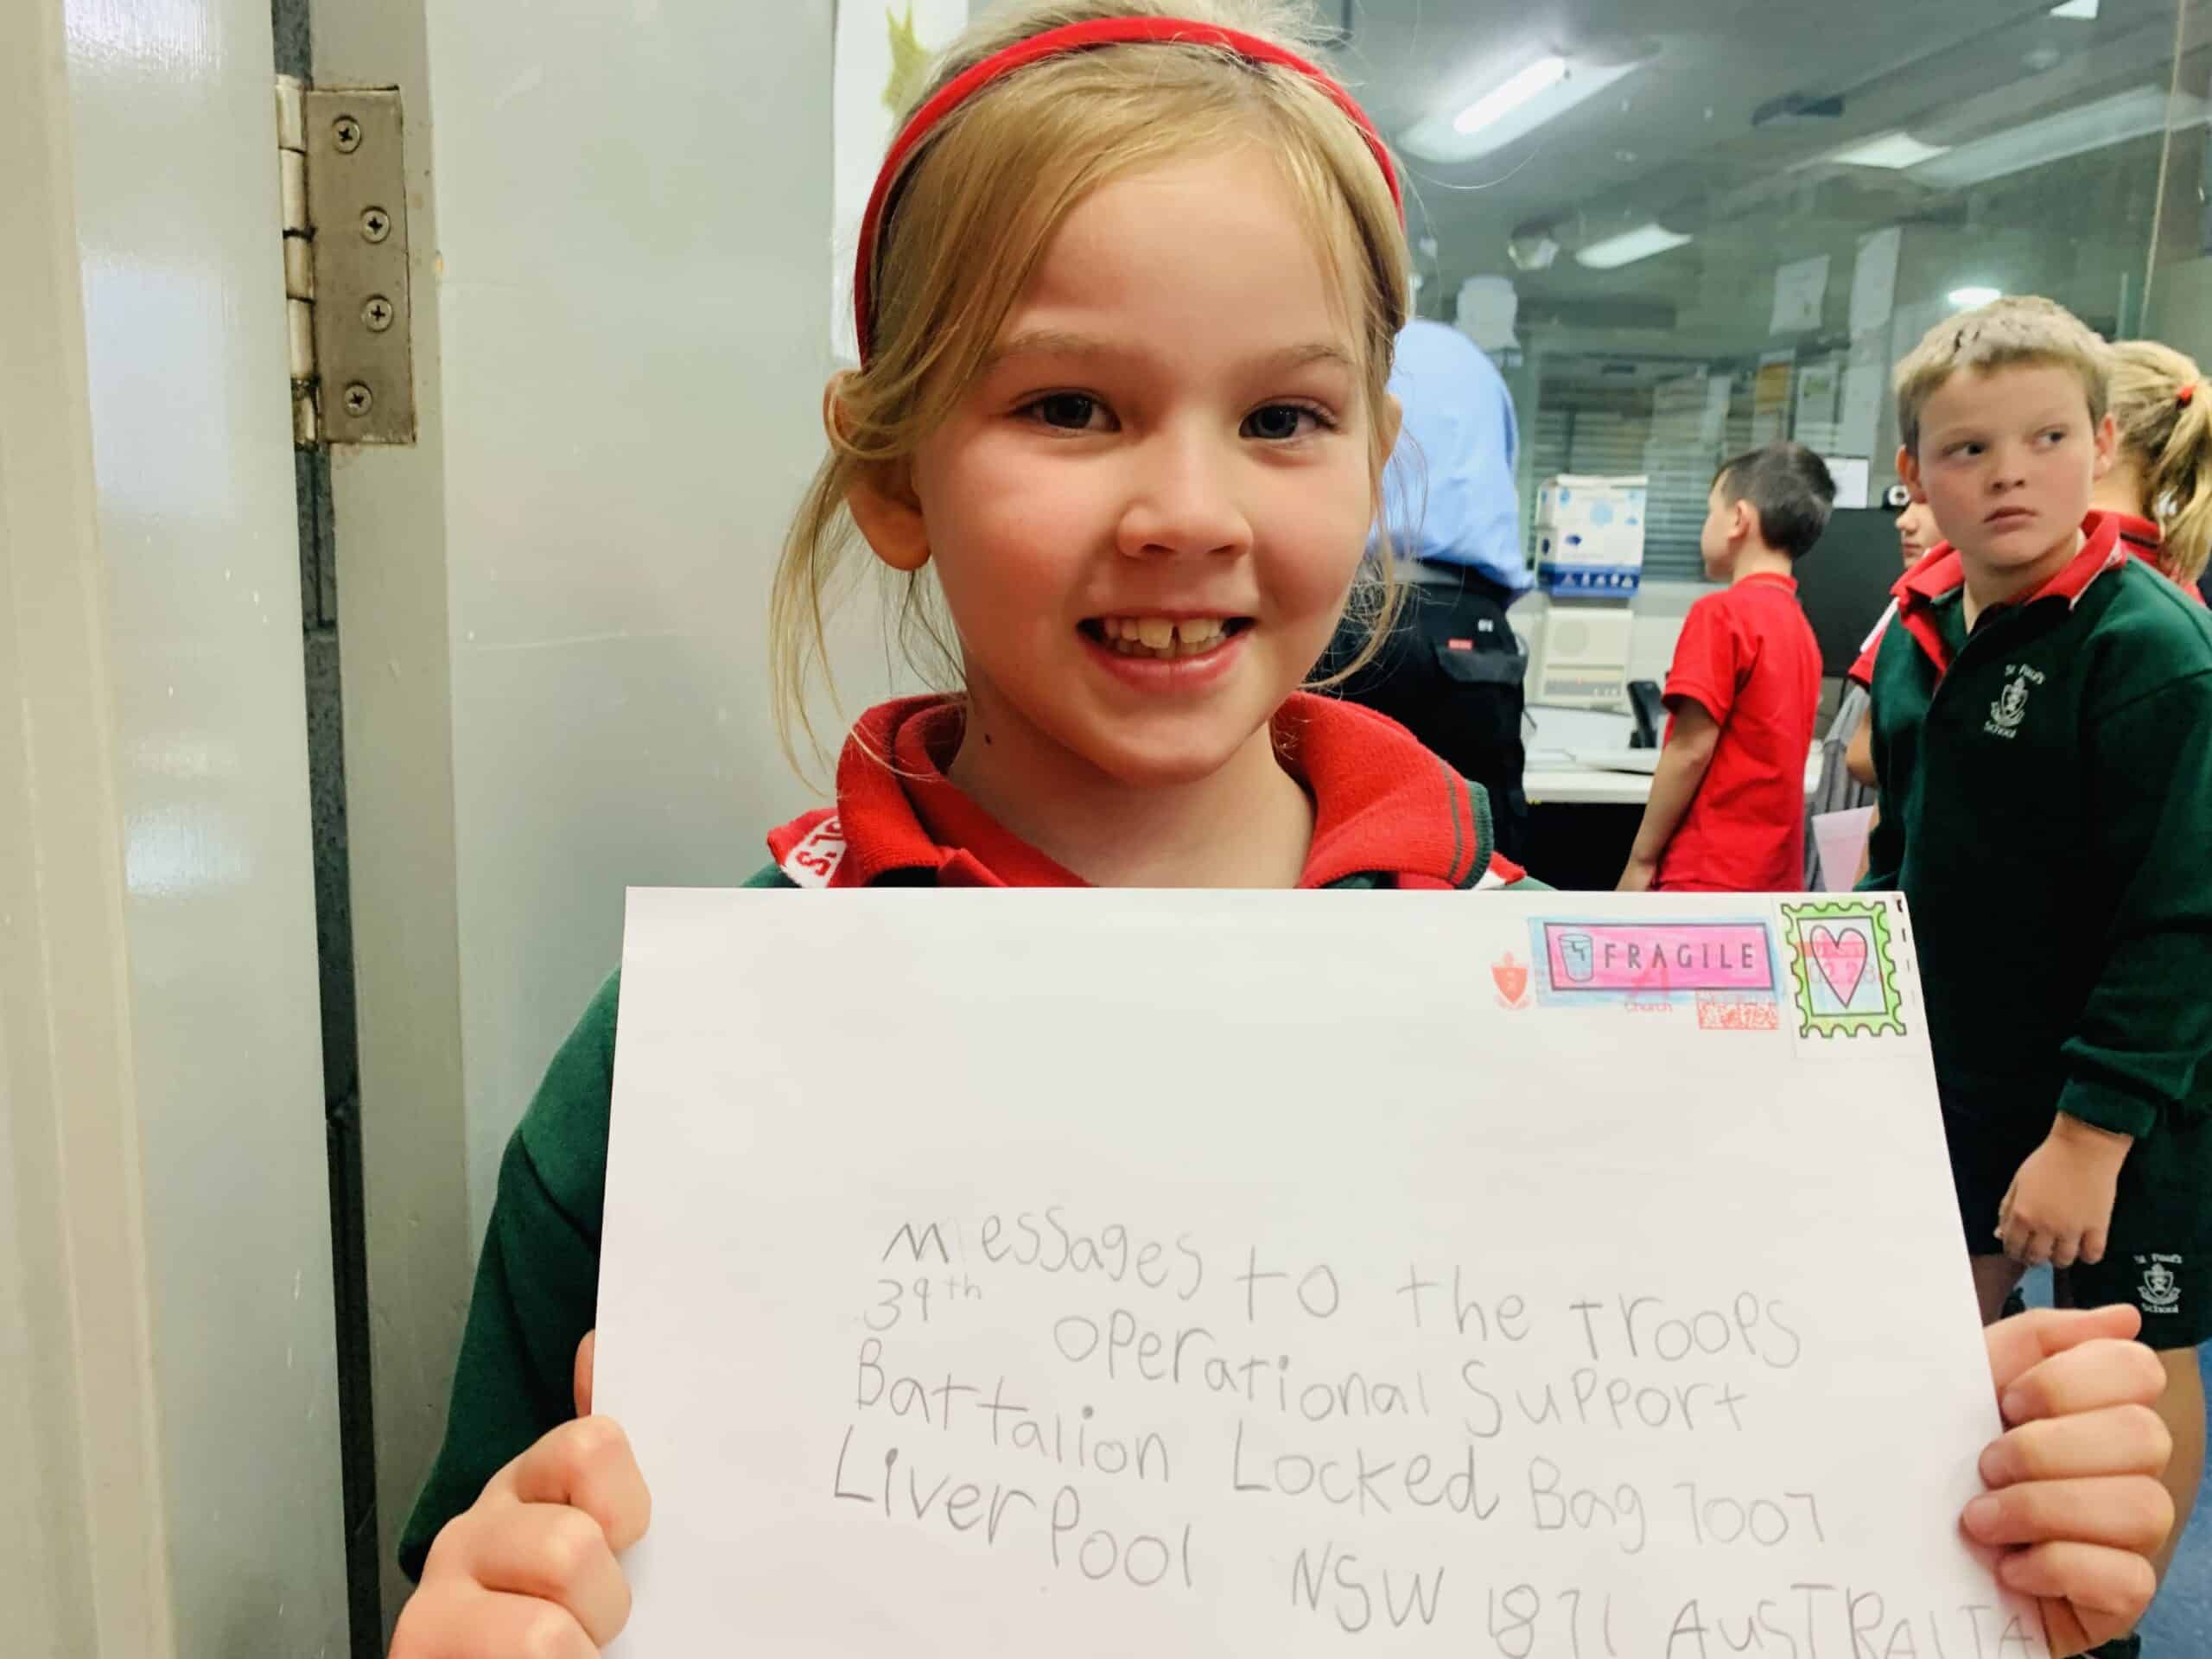 FRAGILE
Church
messages to the Troops
39th operational Support
Battalion Locked Bag 7007
LiverPool NSW 1871 AUSTRALIA
St Paul's
School
St Paul's
School